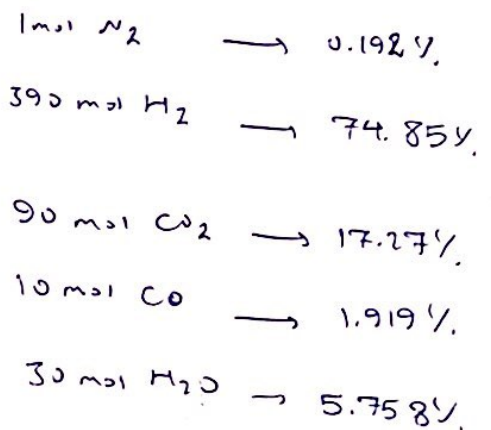 1mol N2 → 0.192%.
390 mol H2 — 74.85%.
90 mol CO2 → 17.27%.
10 mol CO → 1.919%.
30 mol H2O → 5.758%